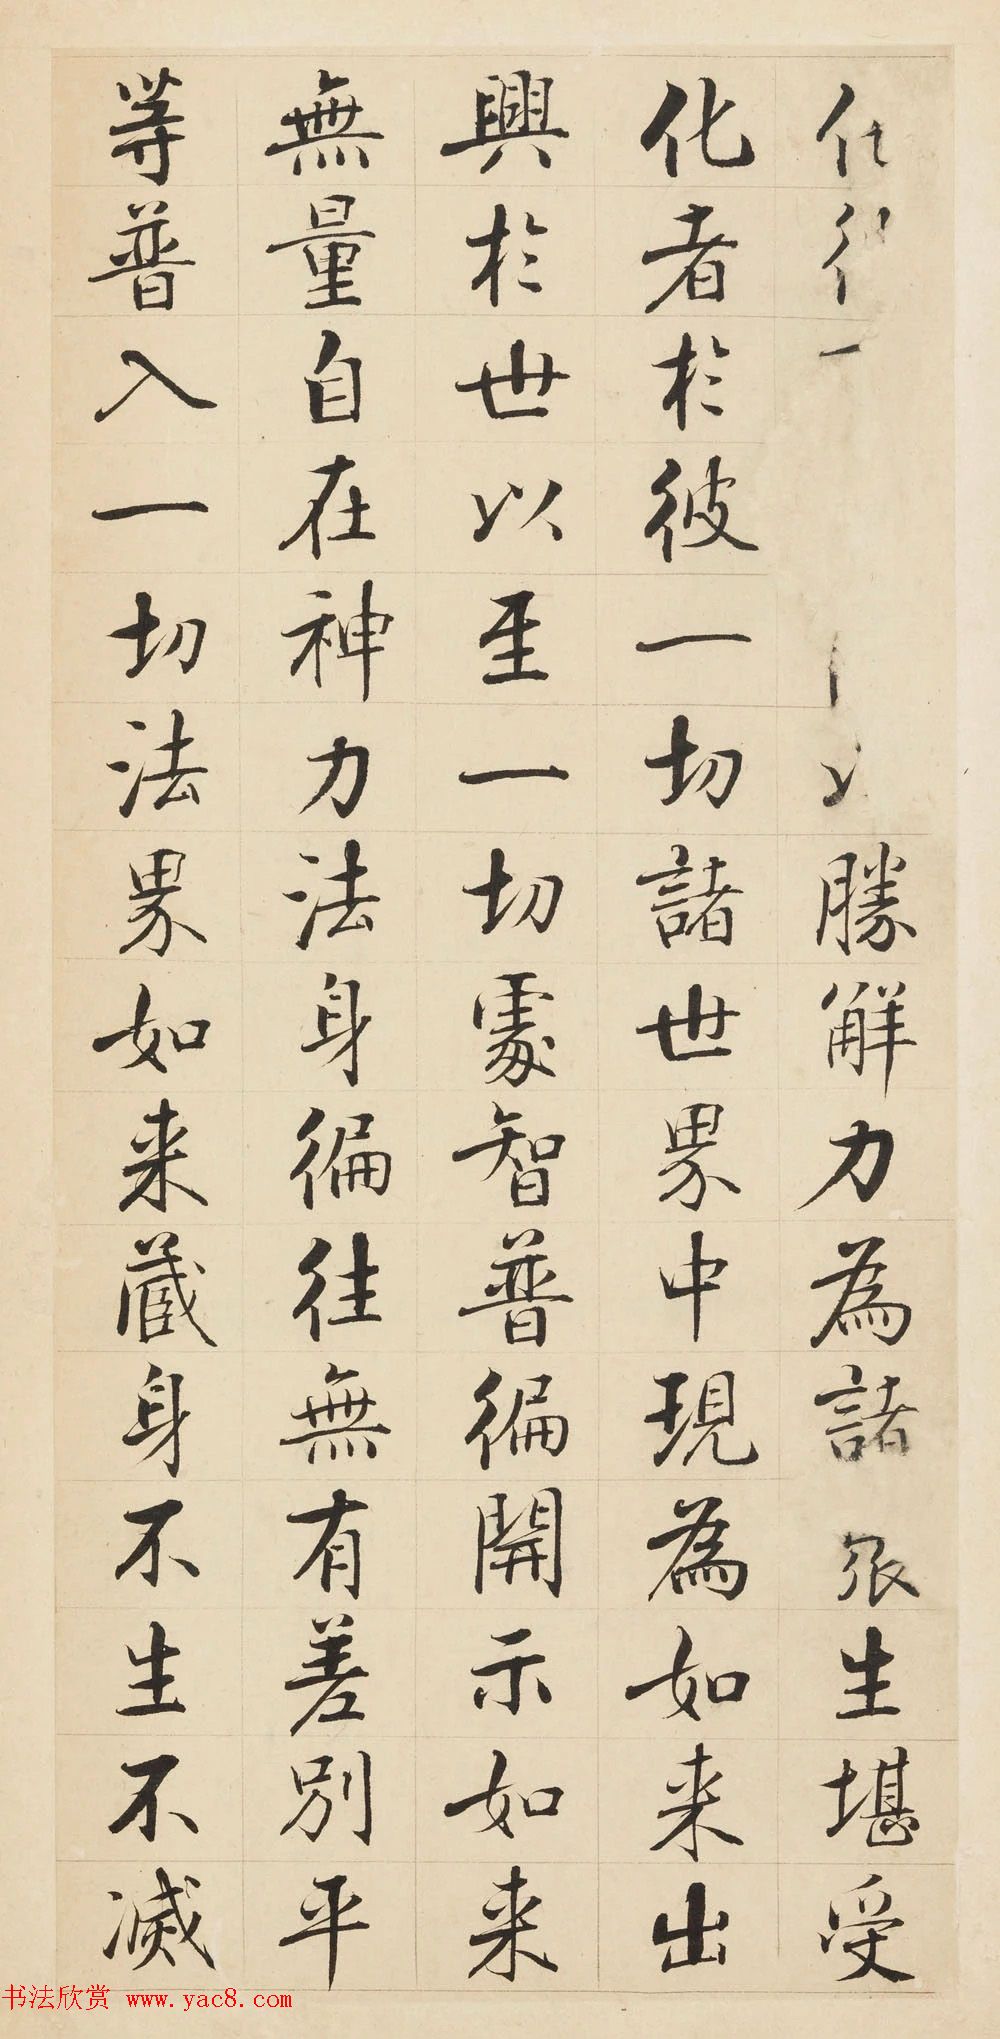 一勝解力為諸生堪受
化者於彼一切諸世界中現為如来出
興於世以至一切處智普徧開示如来
無量自在神力法身徧往無有差别平
等普入一切法界如来蔵身不生不滅
书法欣赏 www.yac8.com